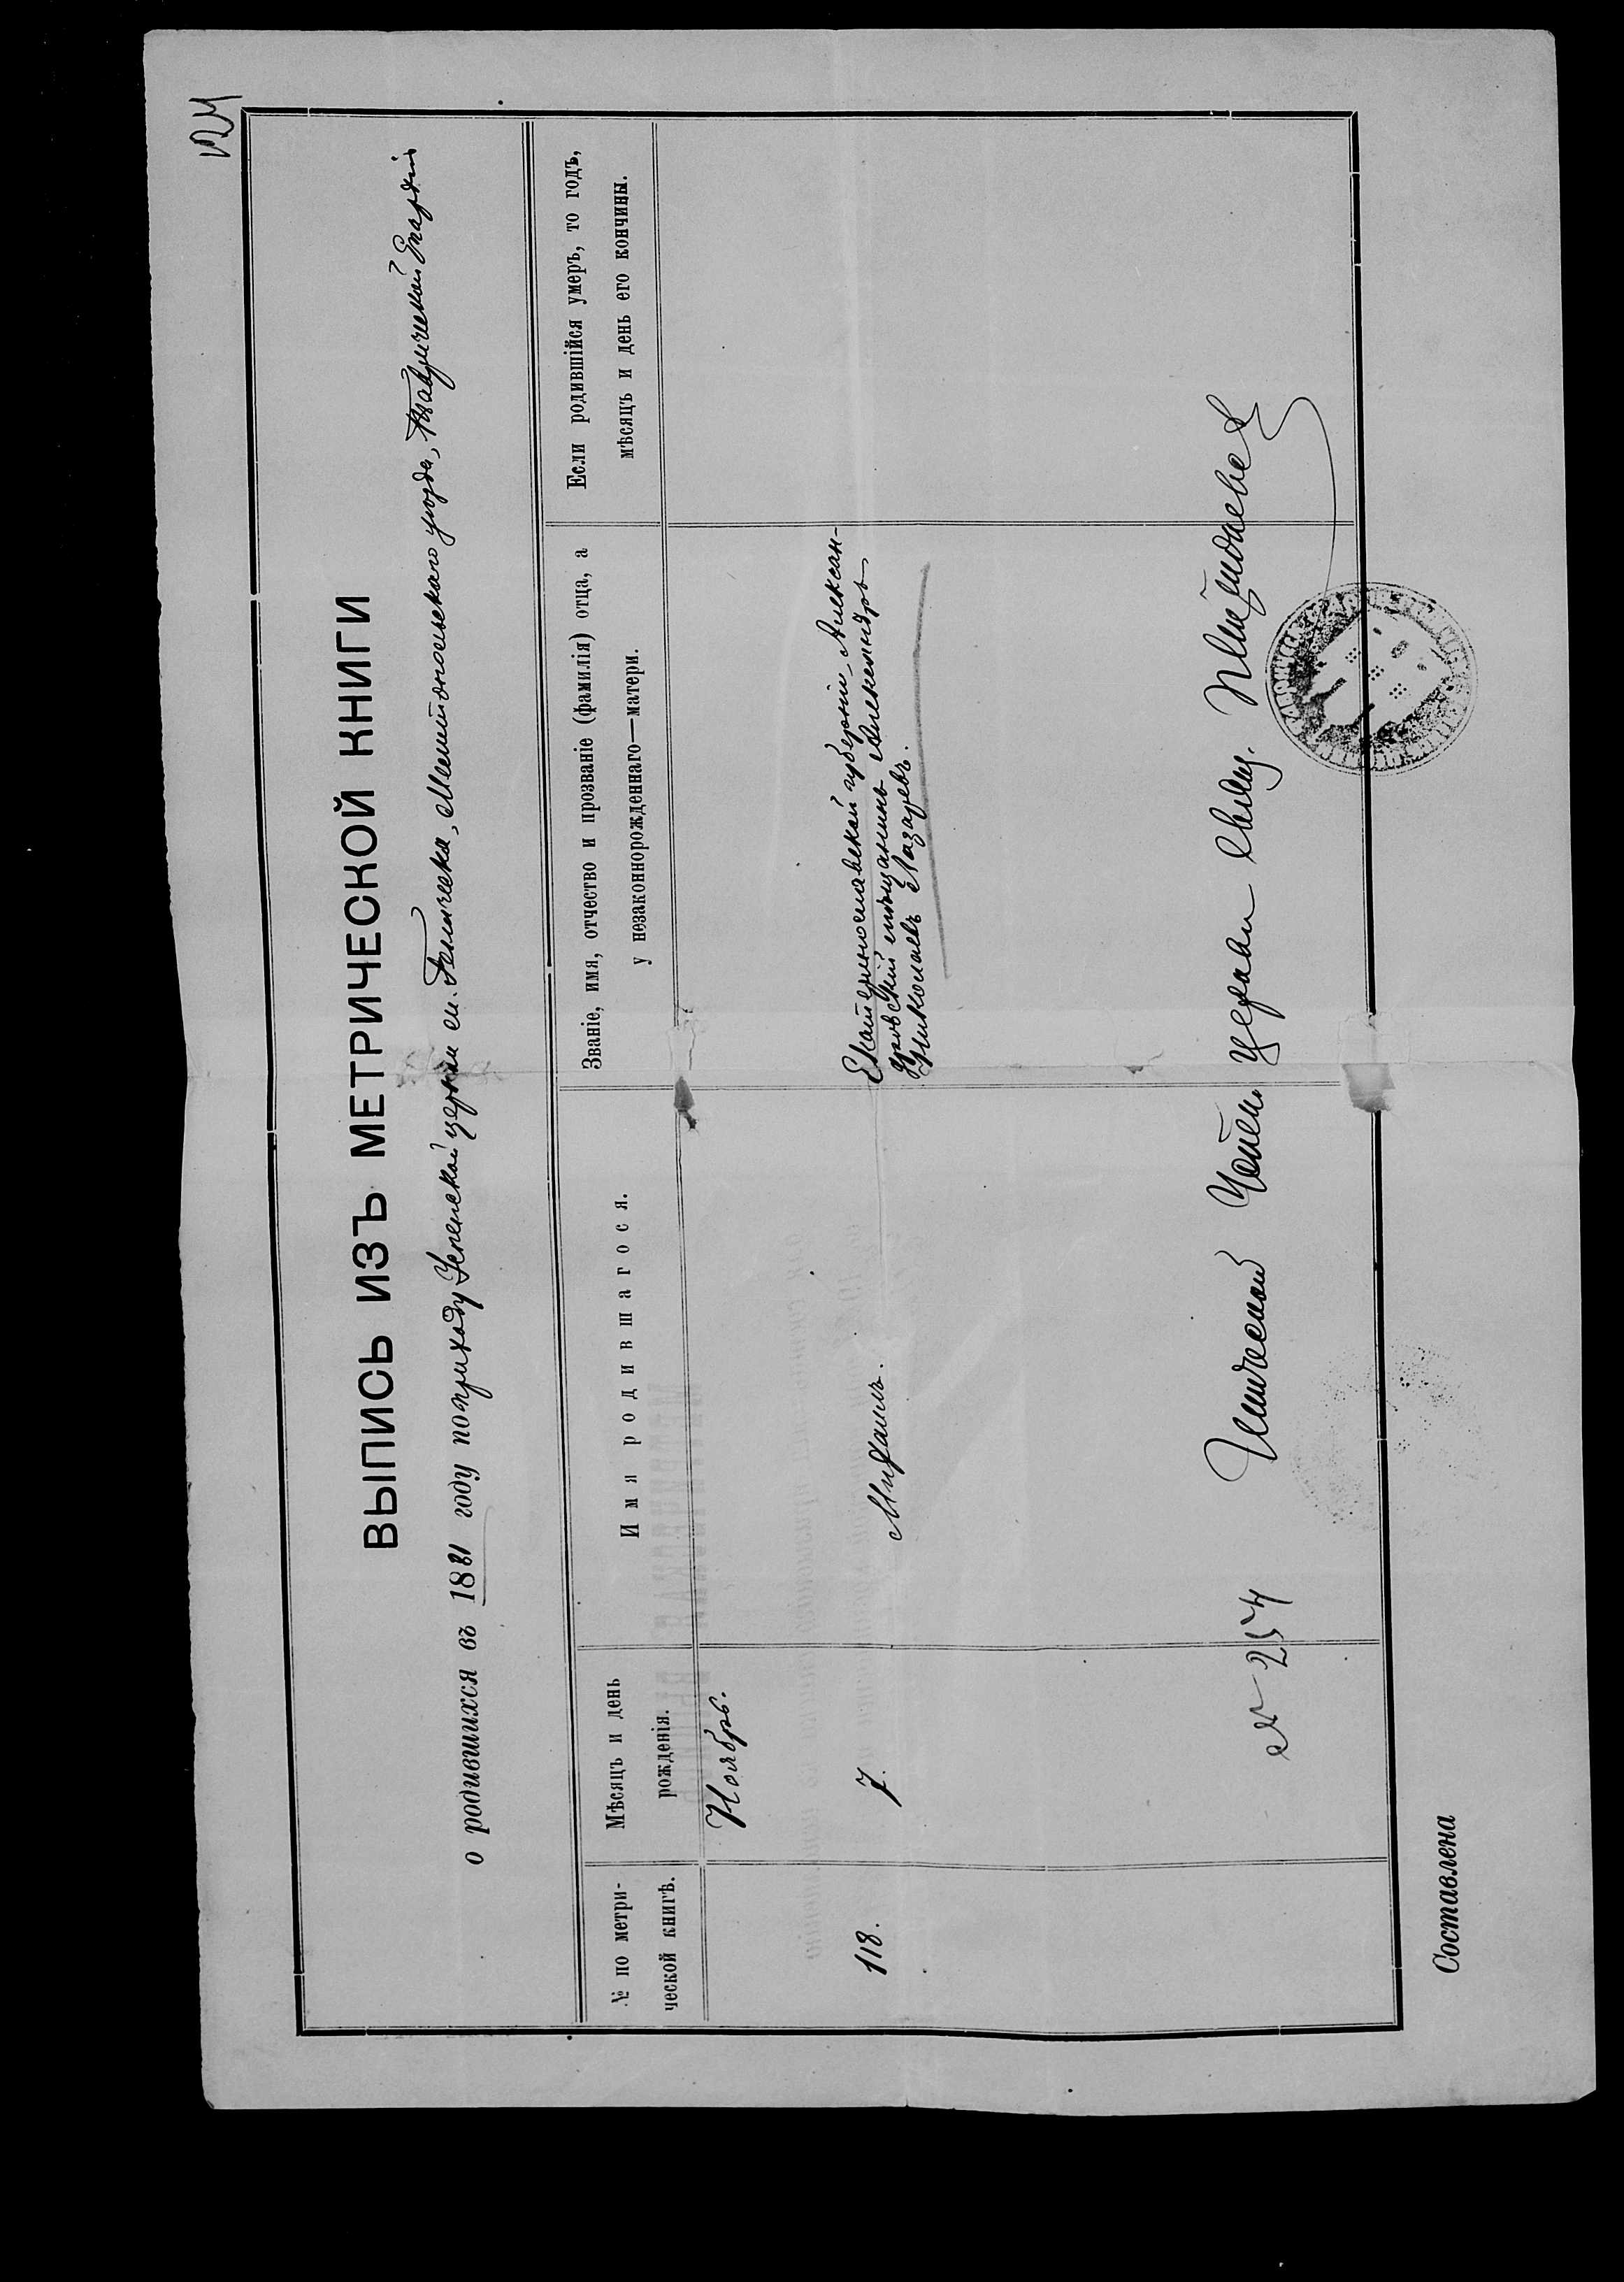 ВЫПИСЬ ИЗЪ МЕТРИЧЕСКОЙ КНИГИ
о родившихся въ 1881 году по приходу Успенской церкви Геническа, Мелитопольскаго уѣзда, Таврической
№ по метри-
ческой книгѣ.
Мѣсяцъ и день
рожденія.
Имя родившагося.
Званіе, имя, отчество и прозваніе (фамилія) отца, а
у незаконнорожденнаго—матери.
Если родившійся умеръ, то годъ,
мѣсяцъ и день его кончины.
Ноябрь.
118.
7.
Михаилъ.
Екатеринославской губерніи, Алексан-
дровскій мѣщанинъ Александръ
Николаевъ Лазаревъ.
№ 254
церкви Свящ.
Составлена